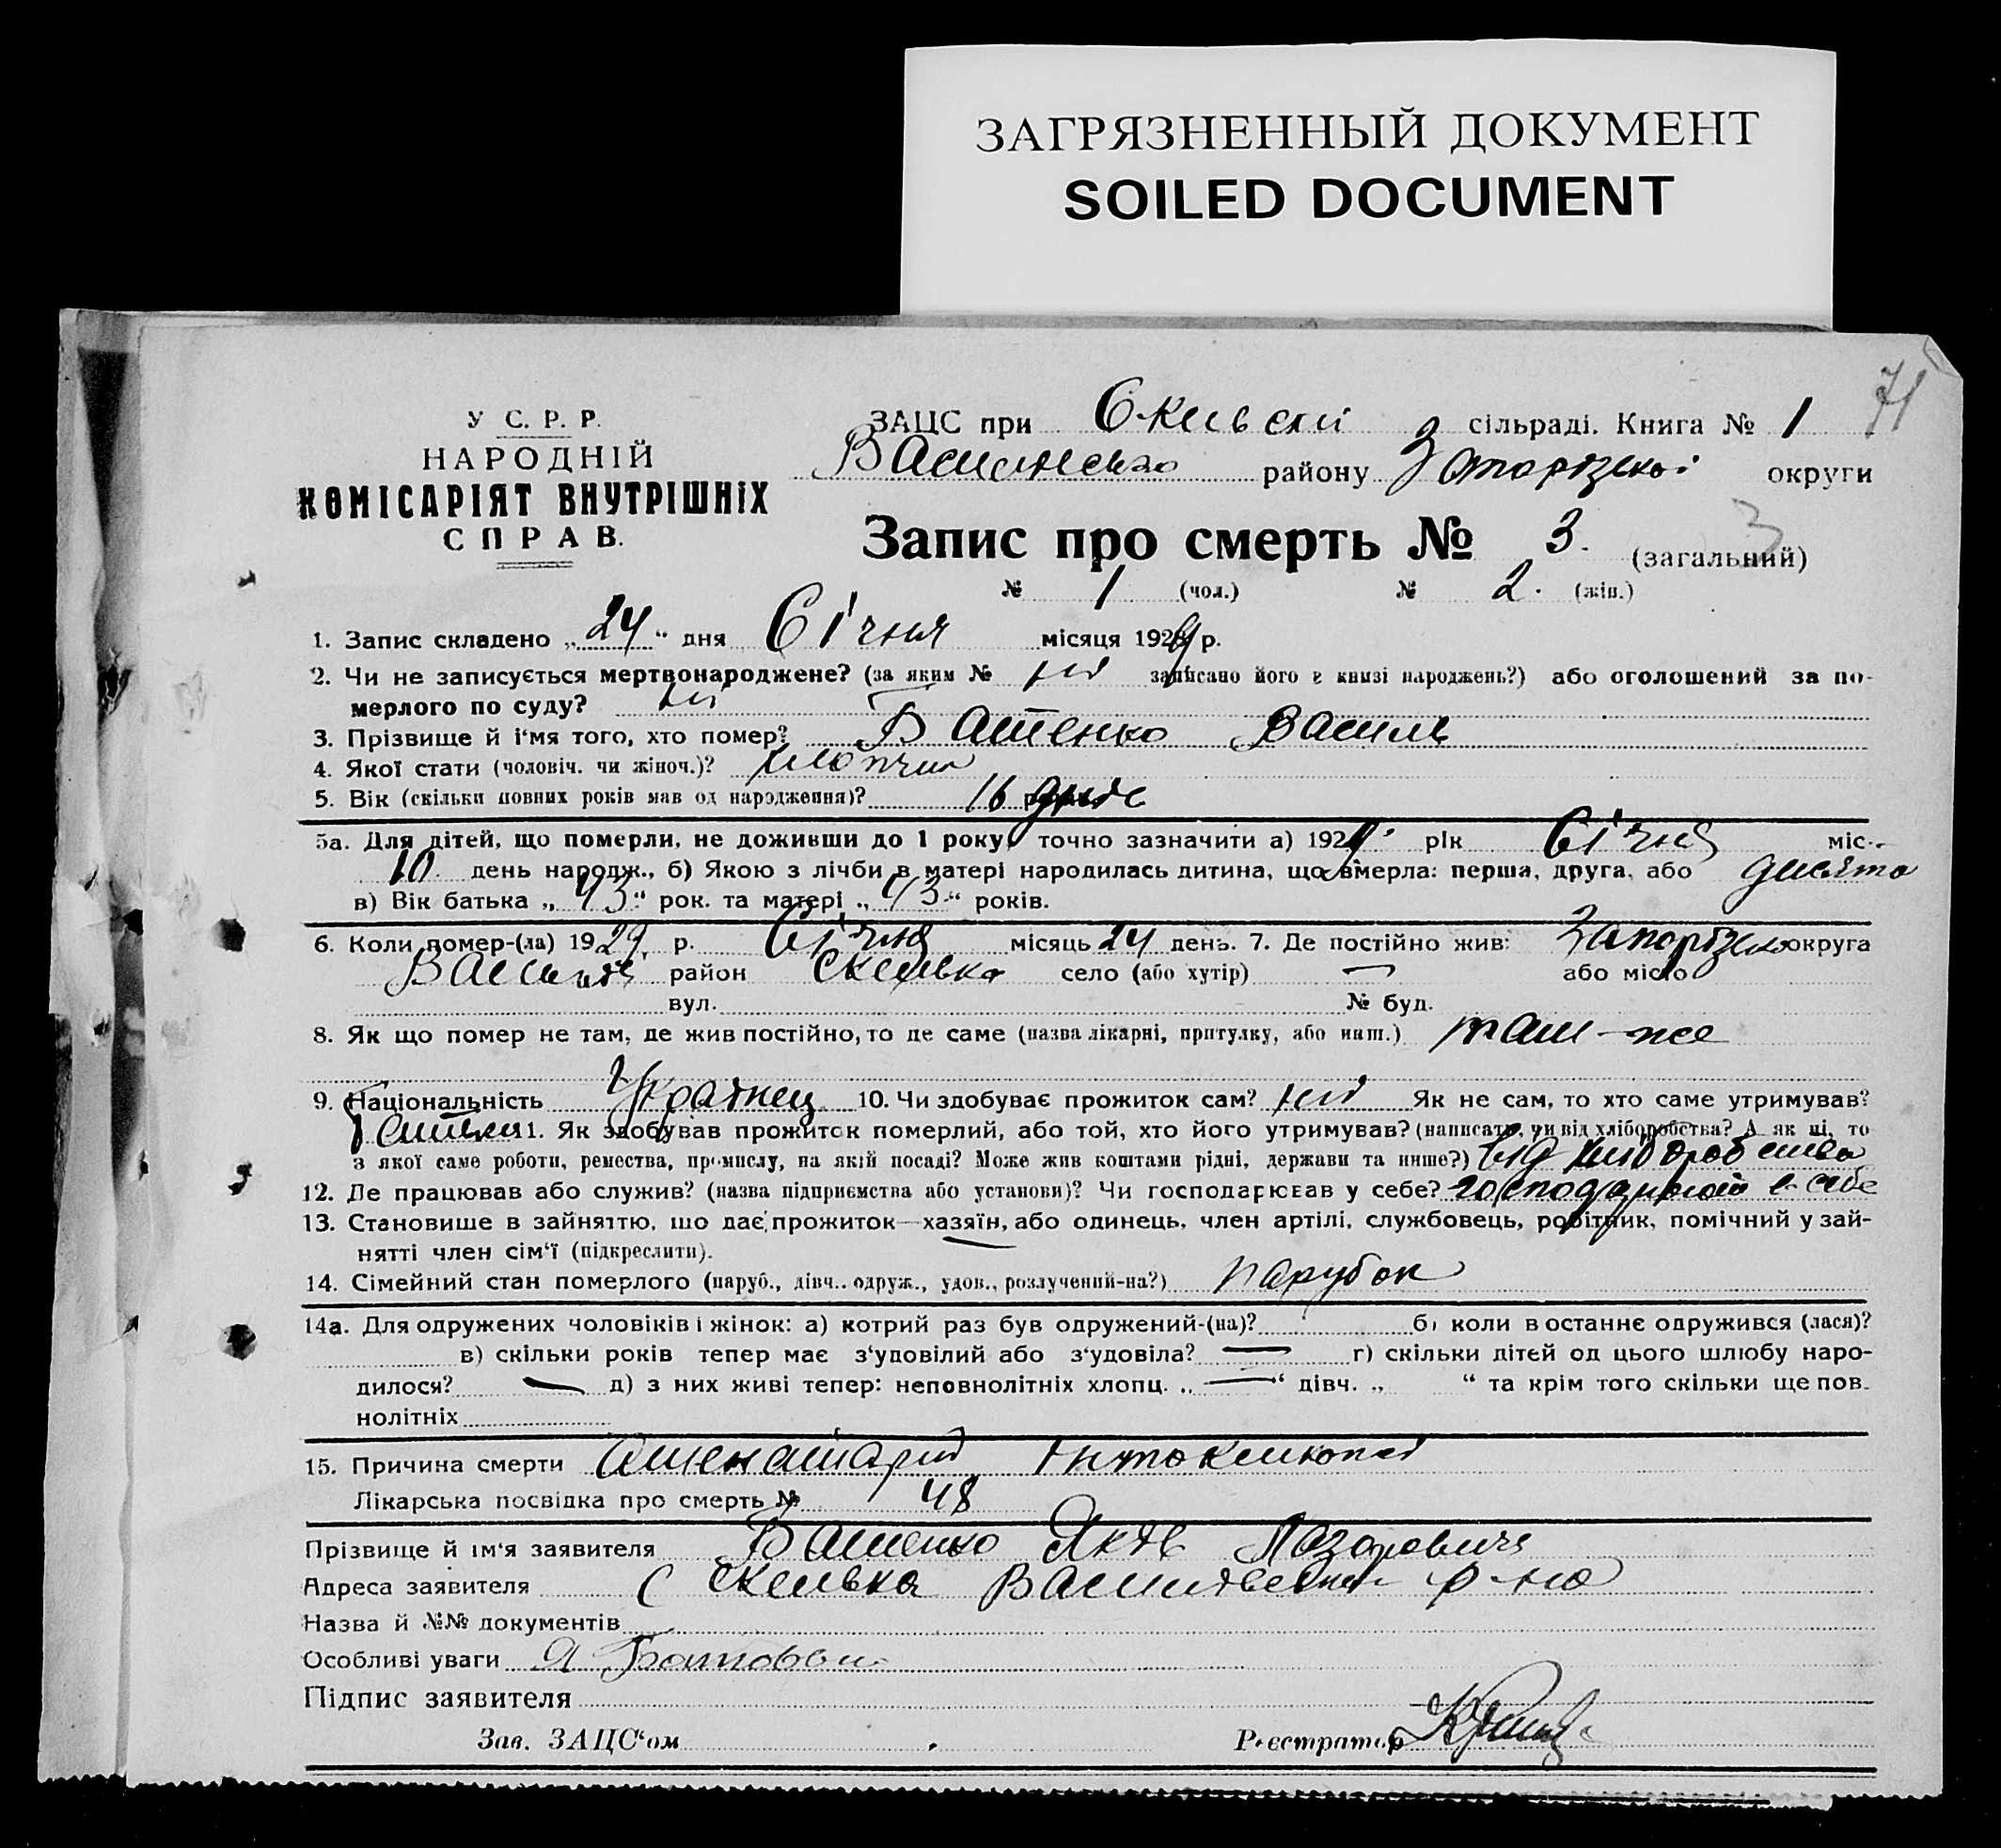 ЗАГРЯЗНЕННЫЙ ДОКУМЕНТ
SOILED DOCUMENT
71
У С. Р. Р.
НАРОДНІЙ
КОМІСАРІЯТ ВНУТРІШНІХ
СПРАВ.
ЗАЦС при сільраді. Книга № 1
району округи
Запис про смерть № 3. (загальний) 3
№ 1 (чол.) № 2. (жін.)
1. Запис складено „24“ дня Січня місяця 1929 р.
2. Чи не записується мертвонароджене? (за яким № ні записано його в книзі народжень?) або оголошений за по-
мерлого по суду? ні
3. Прізвище й і'мя того, хто помер? Василь
4. Якої статі (чоловіч. чи жіноч.)? хлопчик
5. Вік (скільки повних років мав од народження)? 16 днів
5а. Для дітей, що померли, не доживши до 1 року, точно зазначити а) 1929 рік Січня міс.
10 день народж., б) Якою з лічби в матері народилась дитина, що вмерла: перша, друга, або десята
в) Вік батька „43“ рок. та матері „43“ років.
6. Коли помер-(ла) 1929 р. Січня місяць 24 день. 7. Де постійно жив: Запорізька округа
район Скелька село (або хутір) — або місто
вул. № буд.
8. Як що помер не там, де жив постійно, то де саме (назва лікарні, притулку, або инш.) там-же
9. Національність Українец 10. Чи здобуває прожиток сам? ні Як не сам, то хто саме утримував?
Батько 11. Як здобував прожиток померлий, або той, хто його утримував? (написати, чи від хліборобства? А як ні, то
з якої саме роботи, ремества, промислу, на якій посаді? Може жив коштами рідні, держави та инше?) від хліборобства
12. Де працював або служив? (назва підприємства або установи)? Чи господарював у себе? в себе
13. Становише в зайняттю, що дає прожиток—хазяїн, або одинець, член артілі, службовець, робітник, помічний у зай-
нятті член сім'ї (підкреслити).
14. Сімейний стан померлого (паруб., дівч.. одруж., удов., розлучений-на?) парубок
14а. Для одружених чоловіків і жінок: а) котрий раз був одружений-(на)? б) коли в останнє одружився (лася)?
в) скільки років тепер має з'удовілий або з'удовіла? — г) скільки дітей од цього шлюбу наро-
дилося? — д) з них живі тепер: неповнолітніх хлопц. „—“ дівч. „ “ та крім того скільки ще пов.
нолітніх
15. Причина смерти
Лікарська посвідка про смерть № 48
Прізвище й ім'я заявителя Яків Лазарович
Адреса заявителя с Скелька р-на
Назва й №№ документів
Особливі уваги
Підпис заявителя
Зав. ЗАЦС'ом Реєстратор